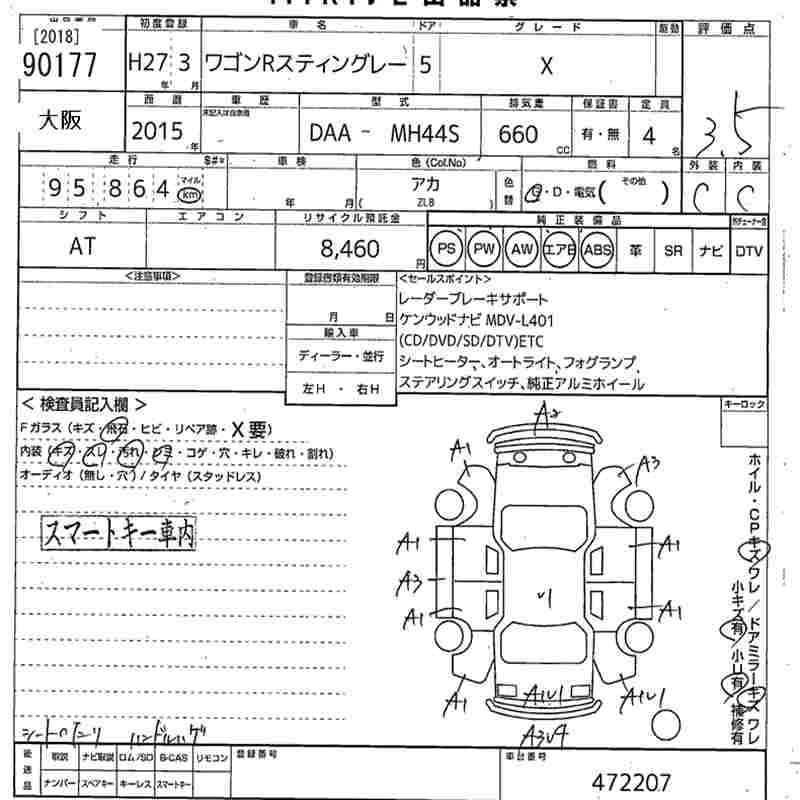 [2018]
90177
初度登録
車名
ドア
グレード
駆動
評価点
H27 3
年 月
ワゴンRスティングレー
5
X
3.5
大阪
西暦
車歴
型式
排気量
保証書
定員
2015 年
未記入は自家用
DAA - MH44S
660 CC
有・無
4 名
走行
車検
色 (Col.No)
燃料
外装
内装
95,864
マイル
km
年 月
アカ
( ZLB )
色替
G・D・電気( その他 )
C
C
シフト
エアコン
リサイクル預託金
純正装備品
AT
8,460 円
PS PW AW エアB ABS 革 SR ナビ DTV
<注意事項>
登録書類有効期限
月 日
輸入車
ディーラー・並行
左H ・ 右H
<セールスポイント>
レーダーブレーキサポート
ケンウッドナビ MDV-L401
(CD/DVD/SD/DTV)ETC
シートヒーター、オートライト、フォグランプ、
ステアリングスイッチ、純正アルミホイール
キーロック
< 検査員記入欄 >
Fガラス (キズ・飛石・ヒビ・リペア跡・X要)
内装 (キズ・スレ・汚れ・シミ・コゲ・穴・キレ・破れ・割れ)
オーディオ (無し・穴) / タイヤ (スタッドレス)
スマートキー車内
A2
A1
A3
A1
A1
A3
A1
A1
U1
A1
A1U1
A1U1
A3U4
ホイル・CPキズワレ / ドアミラーキズワレ
小キズ有 / 小U有 / 補修有
後送品
取説 ナビ取説 ロム/SD B-CAS リモコン
ナンバー スペアキー キーレス スマートキー
登録番号
車台番号
472207